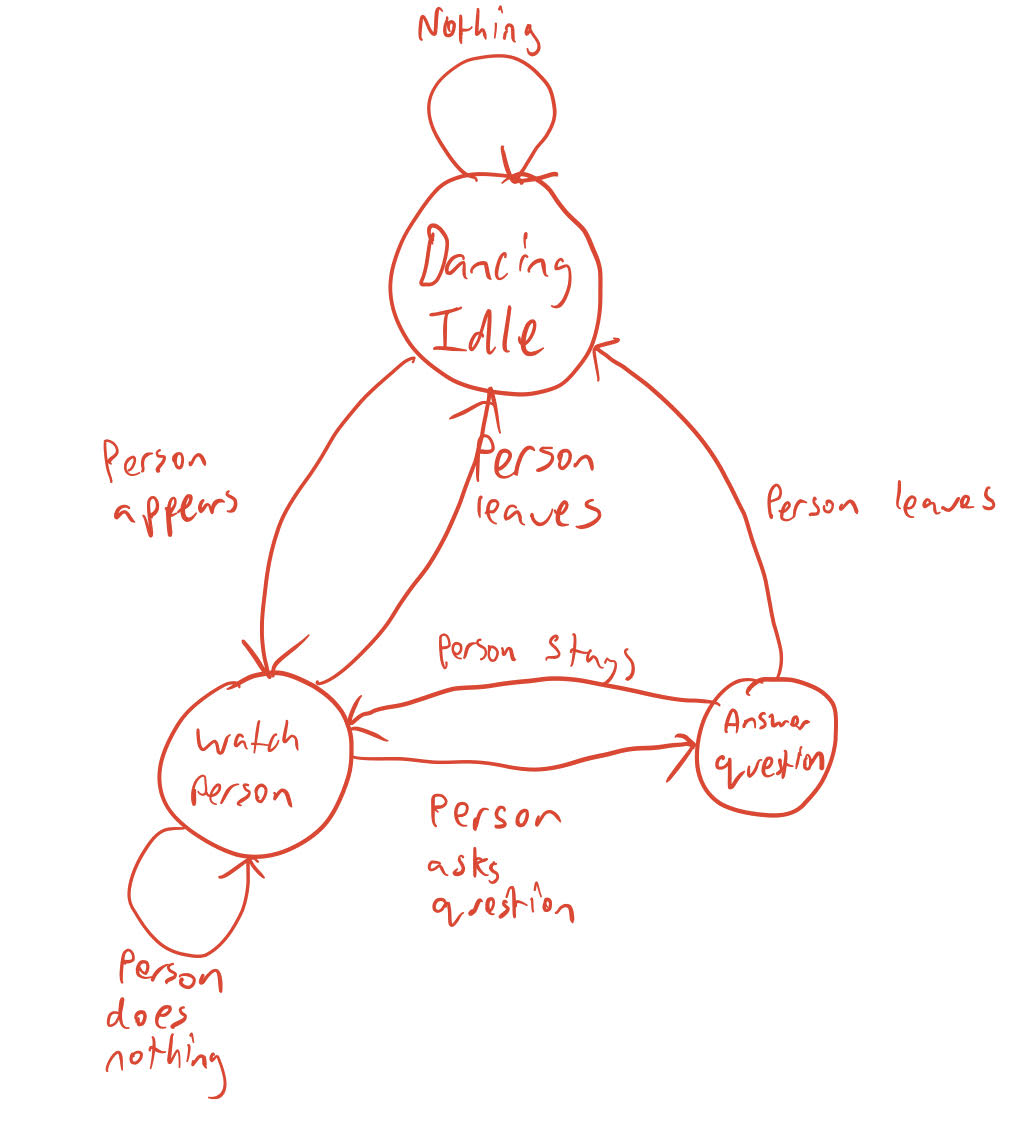 Nothing
Dancing
Idle
Person
appears
Person
leaves
Person leaves
Person stays
Watch
Person
Answer
question
Person
asks
question
Person
does
nothing